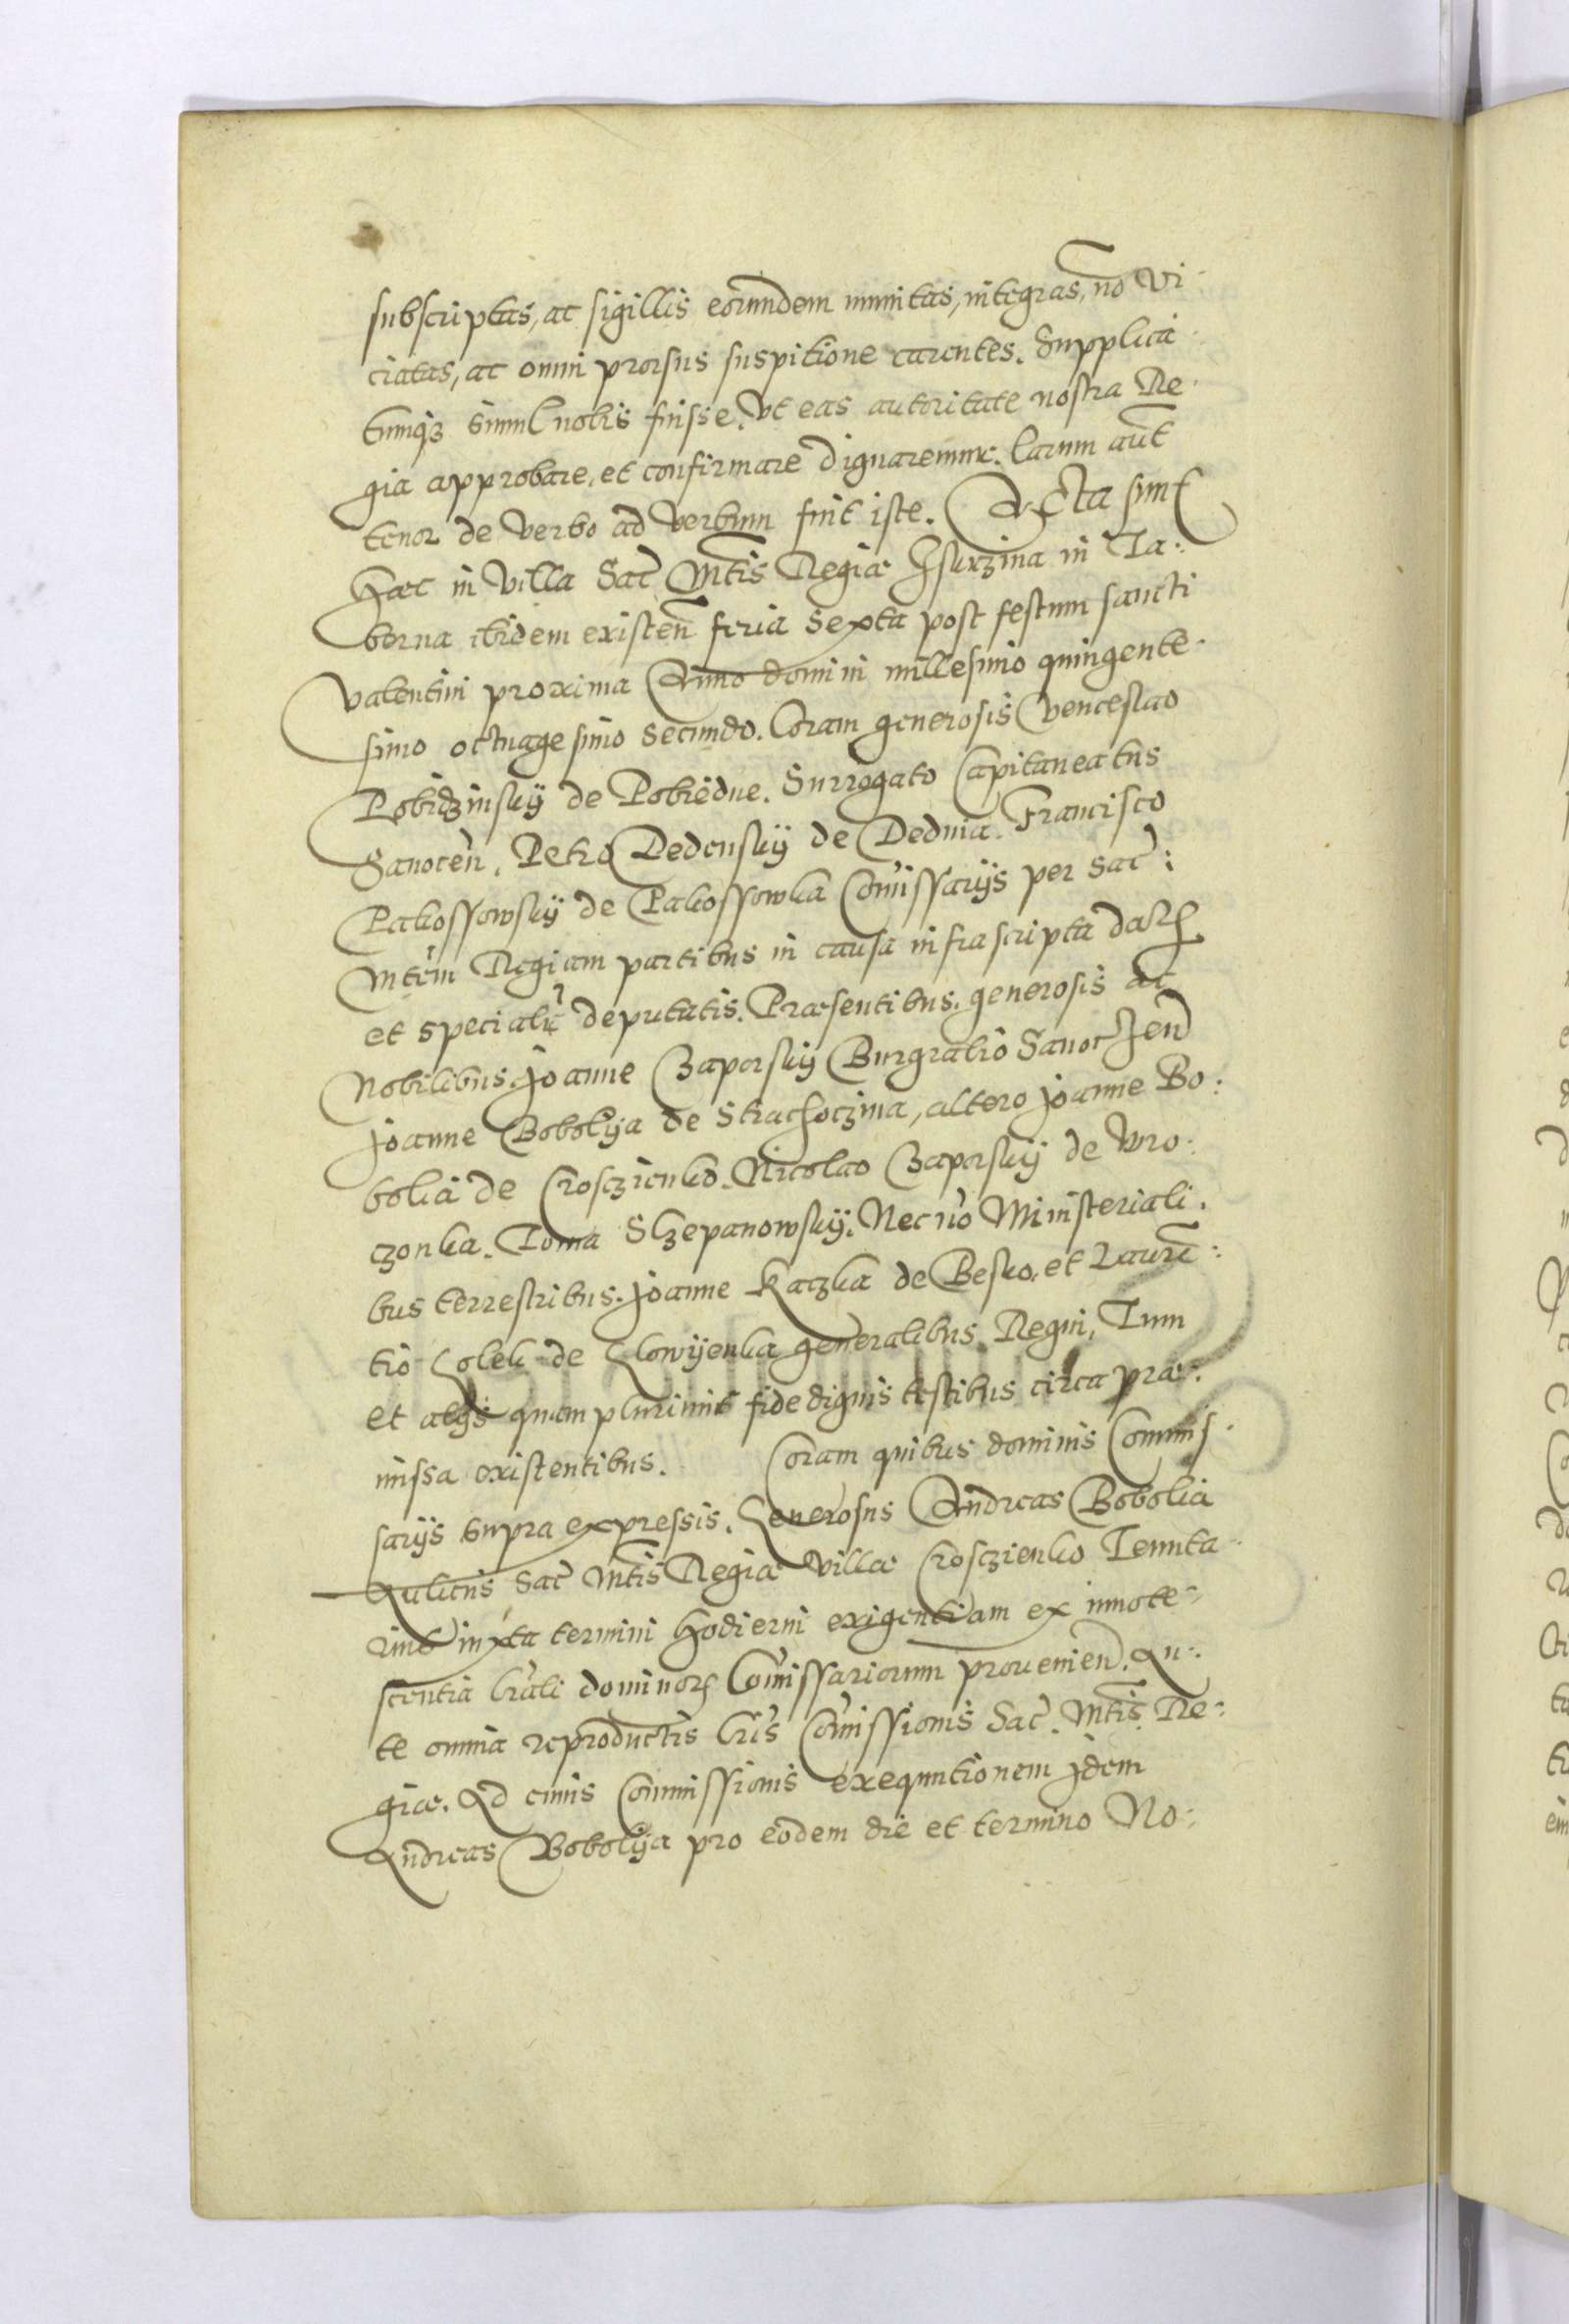 subscriptas, ac sigillis eorundem munitas, integras, nō vi-
ciatas, ac omni prorsus suspitione carentes. Supplica-
tumq3 simul nobis fuisse. Vt eas autoritate nostra Re-
gia approbare, et confirmare dignaremur. Earum aūt
tenor de verbo ad verbum fuit iste. Acta sunt
Hæc in Villa Sac̄ Mtis Regiæ Isurzina in Ta:
berna ibidem existen̄ feria Sexta post festum sancti
Valentini proxima Anno domini millesimo quingente-
simo octuagesimo Secundo. Coram generosis Venceslao
Pobidzinskÿ de Pobiedne. Surrogato Capitaneatus
Sanocen̄, Petro DedenskŸ de Dednia. Francisco
Pakossowskÿ de Pakossowka Com̄issarÿs per Sac̄:
Mtēm Regiam partibus in causa infrascripta datis
et specialr̄ deputatis. Præsentibus. generosis ac
Nobilibus. Joanne Zaporskÿ Burgrabio Sanocẑen̄
Joanne Bobolÿa de Strachoczina, altero Joanne Bo:
bolia de Crosczienko. Nicolao Zaporskÿ de Wro-
czonka. Toma Sczepanowskÿ. Nec nō Ministeriali-
bus terrestribus. Joanne Kaczka de Besko, et Laurē:
tio Golek de Glowÿenka generalibus Regni, Tum
et alÿs quam plurimis fidedignis testibus circa præ:
missa existentibus. Coram quibus dominis Commis-
sarÿs supra expressis. Generosus Andreas Bobolia
Aulicus Sac̄ Mtis Regiæ villæ Crosczienko Tenuta-
rius iuxta termini hodierni exigentiam ex innote-
scentia lrāli dominorum Com̄issariorum prouenien̄. An:
te omnia reproductis lrīs Com̄issionis Sac̄. Mtis Re-
giæ. Ad cuius Commissionis exequutionem Jdem
Andreas Bobolÿa pro eodem die et termino No: